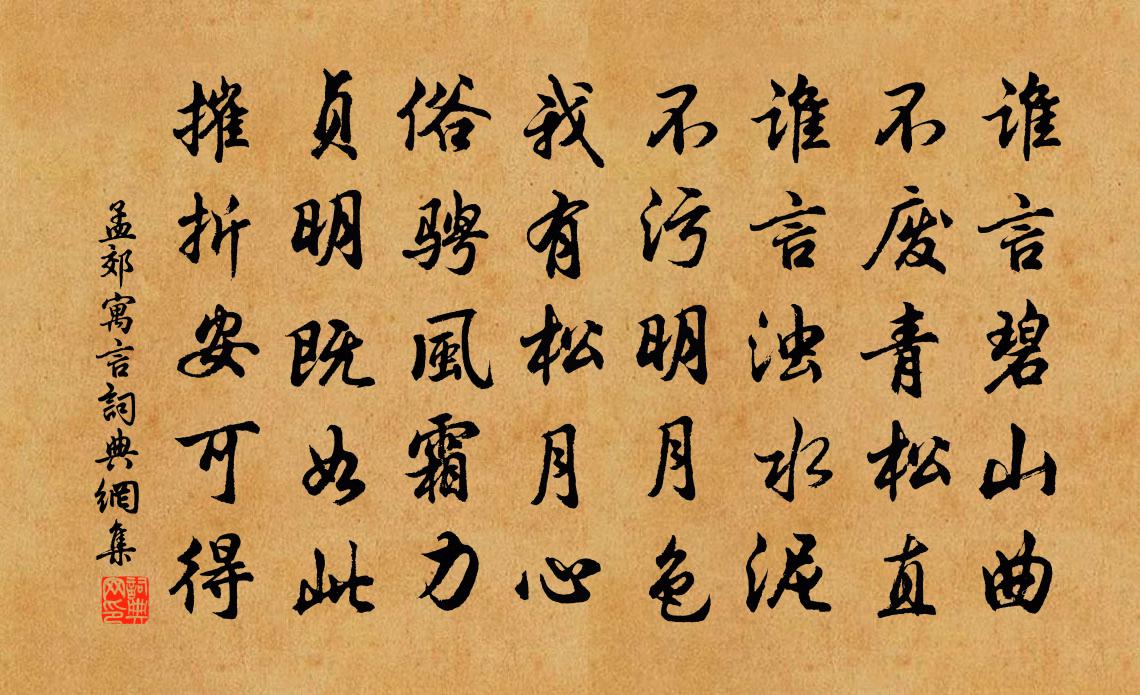 谁言碧山曲
不废青松直
谁言浊水泥
不污明月色
我有松月心
俗骋風霜力
貞明既如此
摧折安可得
孟郊寓言詞典網集
詞典網印